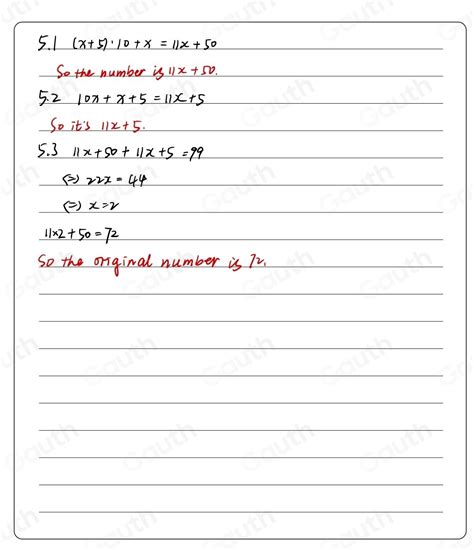 5.1 (x+5)·10+x = 11x+50
So the number is 11x+50.
5.2 10x+x+5=11x+5
So it's 11x+5.
5.3 11x+50+11x+5=99
(=) 22x=44
(=) x=2
11×2+50=72
So the original number is 72.
Gauth